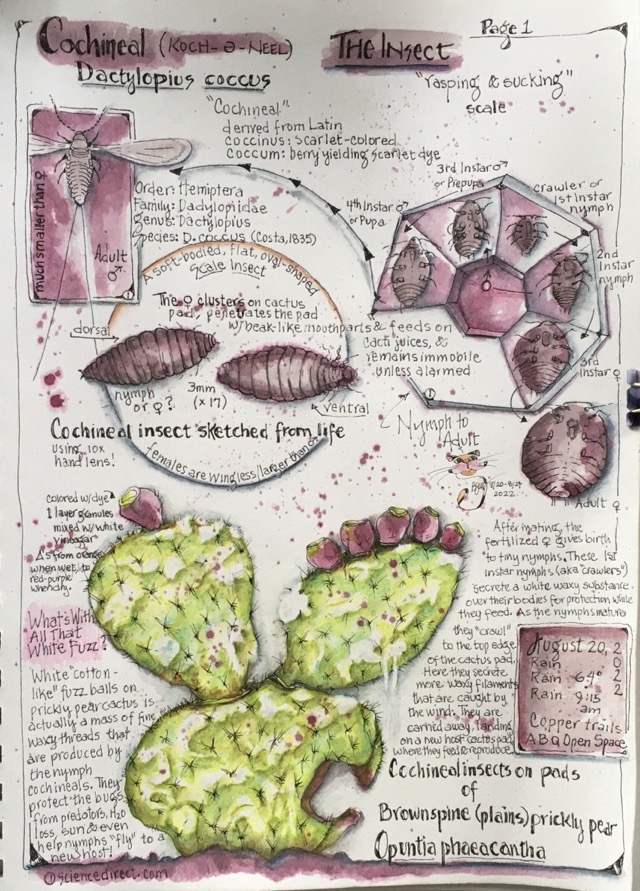 Cochineal (KOCH-Ə-NEEL)
Dactylopius coccus
THE INSECT
Page 1
"rasping & sucking"
scale
"Cochineal"
derived from Latin
coccinus: scarlet-colored
coccum: berry yielding scarlet dye
much smaller than ♀
Adult
♂
Order: Hemiptera
Family: Dadylopiidae
Genus: Dactylopius
Species: D. coccus (Costa, 1835)
A soft-bodied, flat, oval-shaped
Scale Insect
The ♀ clusters on cactus
pad, penetrates the pad
w/beak-like mouthparts & feeds on
cacti juices, &
remains immobile
unless alarmed
3rd Instar ♂
or Prepupa
4th Instar ♂
or Pupa
crawler or
1st Instar
nymph
2nd
Instar
nymph
3rd
Instar ♀
Adult ♀
Nymph to
Adult
8/20-8/24
2022
dorsal
nymph
or ♀?
3mm
(x17)
ventral
Cochineal insect sketched from life
using 10x
hand lens!
females are wingless/larger than ♂
colored w/dye
1 layer granules
mixed w/white
vinegar
As from orange
when wet, to
red-purple
when dry.
What's With
All That
White Fuzz?
White "cotton-
like" fuzz balls on
prickly pear cactus is
actually a mass of fine
waxy threads that
are produced by
the nymph
cochineals. They
protect the bugs
from predators, H2O
loss, sun & even
help nymphs "fly" to a
new host!
① sciencedirect.com
After mating, the
fertilized ♀ gives birth
to tiny nymphs. These 1st
instar nymphs (aka "crawlers")
secrete a white waxy substance
over their bodies for protection while
they feed. As the nymphs mature
they "crawl"
to the top edge
of the cactus pad.
Here they secrete
more waxy filaments
that are caught by
the wind. They are
carried away, landing
on a new host cactus pad
where they feed & reproduce.
August 20, 2
0
2
2
Rain
Rain 64°
Rain 9:15
am
Copper trails
ABQ Open Space
Cochineal insects on pads
of
Brownspine (plains) prickly pear
Opuntia phaeacantha